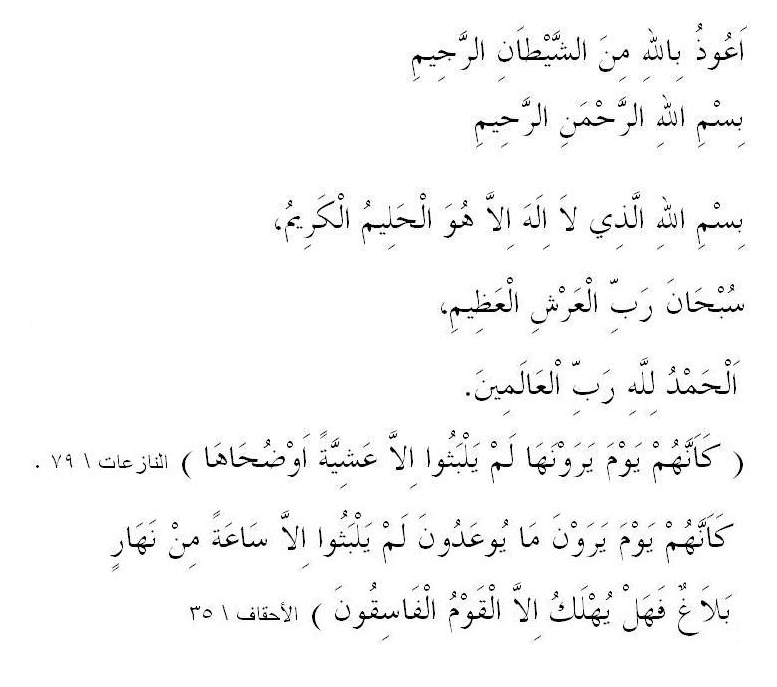 اَعُوذُ بِاللهِ مِنَ الشَّيْطَانِ الرَّجِيمِ
بِسْمِ اللهِ الرَّحْمَنِ الرَّحِيمِ
بِسْمِ اللهِ الَّذِي لاَ اِلَهَ اِلاَّ هُوَ الْحَلِيمُ الْكَرِيمُ،
سُبْحَانَ رَبِّ الْعَرْشِ الْعَظِيمِ،
اَلْحَمْدُ لِلَّهِ رَبِّ الْعَالَمِينَ.
( كَاَنَّهُمْ يَوْمَ يَرَوْنَهَا لَمْ يَلْبَثُوا اِلاَّ عَشِيَّةً اَوْضُحَاهَا ) النازعات \ ٧٩ .
كَاَنَّهُمْ يَوْمَ يَرَوْنَ مَا يُوعَدُونَ لَمْ يَلْبَثُوا اِلاَّ سَاعَةً مِنْ نَهَارٍ
بَلاَغٌ فَهَلْ يُهْلَكُ اِلاَّ الْقَوْمُ الْفَاسِقُونَ ) الأحقاف \ ٣٥